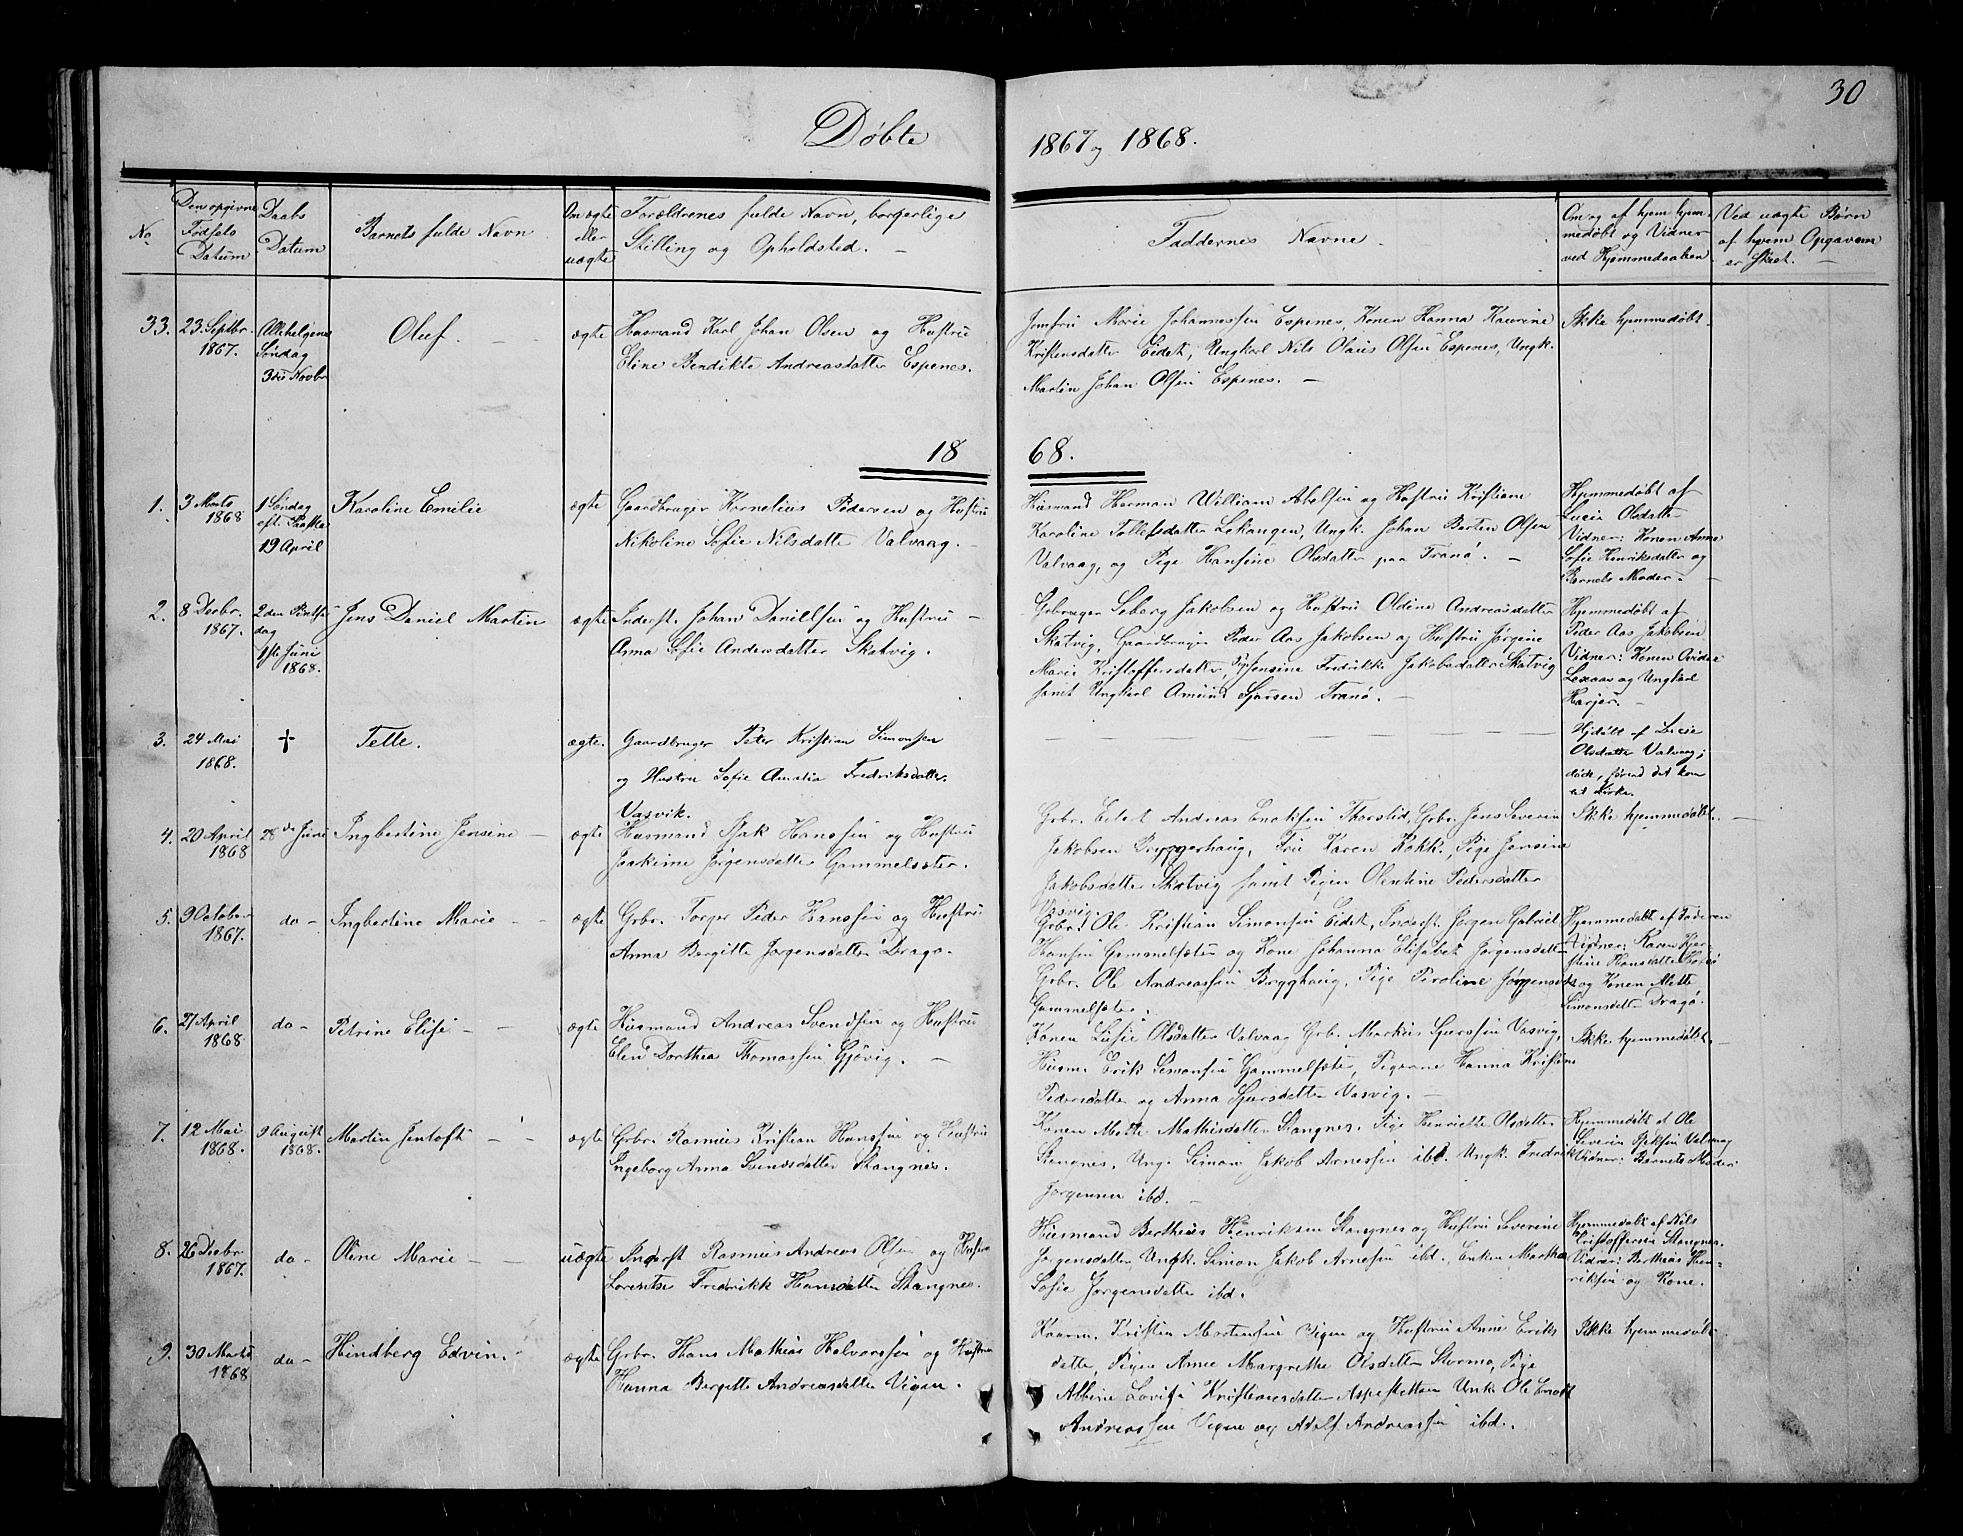 30
Døbte 1867 og 1868.
No
Den opgivne
Fødsels
Datum
Daabs
Datum
Barnets fulde Navn
Om ægte
eller
uægte
Forældrenes fulde Navn, borgerlige
Stilling og Opholdsted. –
Faddernes Navne.
Om og af hvem hjem-
medøbt og Vidner
ved Hjemmedaaben
Ved uægte Børn
af hvem Opgaven
er skeet. –
33. 23. Septbr. 1867.
Allehelgens
Søndag
3die Novbr
Oluf.
ægte
Husmand Karl Johan Olsen og Hustru
Eline Bendikte Andreasdatter Espenes.
Jomfru Marie Johannessen Espenes, Konen Hanna
Kristensdatter Eidet, Ungkarl Nils Olaus Olsen Espenes, Ungk.
Martin Johan Olsen Espenes. –
Ikke hjemmedøbt.
1868.
1. 3 Marts 1868
1 Søndag
eft. Paaske
19 April
Karoline Emilie
ægte
Gaardbruger Kornelius Pedersen og Hustru
Nikoline Sofie Nilsdatter Valvaag. –
Husmand Herman William Abelsen og Hustru Kristiane
Karoline Tollefsdatter Lekangen, Ungk. Johan Berten Olsen
Valvaag, og Pige Hansine Olsdatter paa Tranø. –
Hjemmedøbt af
Lucie Olsdatter
Vidner: Konen Anne
Sofie Henriksdatter og
Barnets Moder. –
2. 8 Decbr. 1867.
2den Pintse
dag
1ste Juni
1868.
Jens Daniel Martin
ægte
Inderst. Johan Danielsen og Hustru –
Anna Sofie Andersdatter Skatvig.
Grbruger Soberg Jakobsen og Hustru Oldine Andreasdatter
Skatvig, Gaardbruger Peder Aas Jakobsen og Hustru Jørgine
Marie Kristoffersdatter, Jensine Fredrikke Jakobsdatter Skatvig
samt Ungkarl Amund Sjursen Tranø. –
Hjemmedøbt af
Peder Aas Jakobsen
Vidner: Konen
og Ungkarl
3. 24 Mai 1868.
†
Telle.
ægte.
Gaardbruger Peter Kristian Simonsen
og Hustru Sofie Amalia Fredriksdatter
Vasvik.
Hjdøbt af Lucie
Olsdatter Valvaag;
døde, førend det kom
til Kirke.
4. 20 April 1868
28de Juni
Ingbertine Jensine –
ægte
Husmand Isak Hanssen og Hustru
Joakime Jørgensdatter Gammelsæter.
Grbr. Andreas Enoksen Thorslid, Grbr. Jens Severin
Jakobsen Bryggerhaug, Fru Karen Kokk, Pige Jensine
Jakobsdatter Skatvig samt Pigen Olentine Pedersdatter
Vasvig.
Ikke hjemmedøbt. –
5. 9 October 1867.
do –
Ingbertine Marie –
ægte
Grbr. Torger Peder Arnssen og Hustru
Anna Bergitte Jørgensdatter Dragø.
Grbr. Ole Kristian Simonsen Eidet, Inderst. Jørgen Gabriel
Hansen Gammelsæter og Kone Johanna Elisabet Jørgensdatter
Grbr. Ole Andreassen Brygghaug, Pige Peroline Jørgensdtr
Gammelsæter.
Hjemmedøbt af Faderen
Vidner: Karen
Hansdatter
og Konen Mette
Simonsdatter Dragø.
6. 21 April 1868
do –
Petrine Elise – –
ægte
Husmand Andreas Svendsen og Hustru
Elen Dorthea Thomassen Gjøvig. –
Konen Lusie Olsdatter Valvaag Grb. Markus Sjurssen Vasvig,
Husm. Erik Simonsen Gammelsæter, Pigerne Hanna Kristine
Pedersdatter og Anna Sjursdatter Vasvig. –
Ikke hjemmedøbt. –
7. 12 Mai 1868.
9 August
1868.
Martin Jentoft – –
ægte
Grbr. Rasmus Kristian Hanssen og Hustru
Ingeborg Anna Svendsdatter Stangnes.
Konen Mette Mathisdatter Stangnes. Pige Henriette Olsdatter
Stangnes, Ung. Simon Jakob Arnessen ibd. Ungk. Fredrik
Jørgensen ibd. –
Hjemmedøbt af Ole
Severin Valvaag
Vidner: Barnets Moder.
8. 26 Decbr 1867.
do –
Oline Marie –
uægte
Inderst Rasmus Andreas Olsen og Hustru
Lorentse Fredrikk Hansdatter Stangnes.
Husmand Bertheus Henriksen Stangnes og Hustru Severine
Jørgensdatter, Ungk. Simon Jakob Arnesen ibd., Enken Martha
Sofie Jørgensdatter ibd.
Hjemmedøbt af Nils
Kristoffersen Stangnes.
Vidner: Bertheus Hen-
riksen og Kone.
9. 30 Marts 1868
do –
Hindberg Edvin.
ægte
Grbr. Hans Mathias Halvorssen og Hustru
Hanna Bergitte Andreasdatter Vigen.
Kristen Mortensen Vigen og Hustru Anne Eriks
datter, Pigen Anne Margrethe Olsdatter Stormo, Pige
Albine Lovise Kristiansdatter Ungk. Ole Enok
Andreassen Vigen og Adolf Andreassen ibd.
Ikke hjemmedøbt